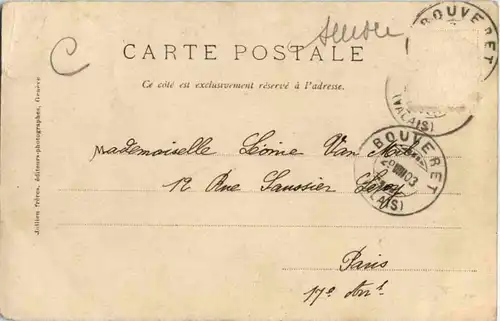 BOUVERET
(VALAIS)
CARTE POSTALE
Ce côté est exclusivement réservé à l'adresse.
Jullien frères, éditeurs-photographes, Genève
Mademoiselle Van
BOUVERET
VIII 03
12 Rue Saussier Leroy
Paris
17e Arrt